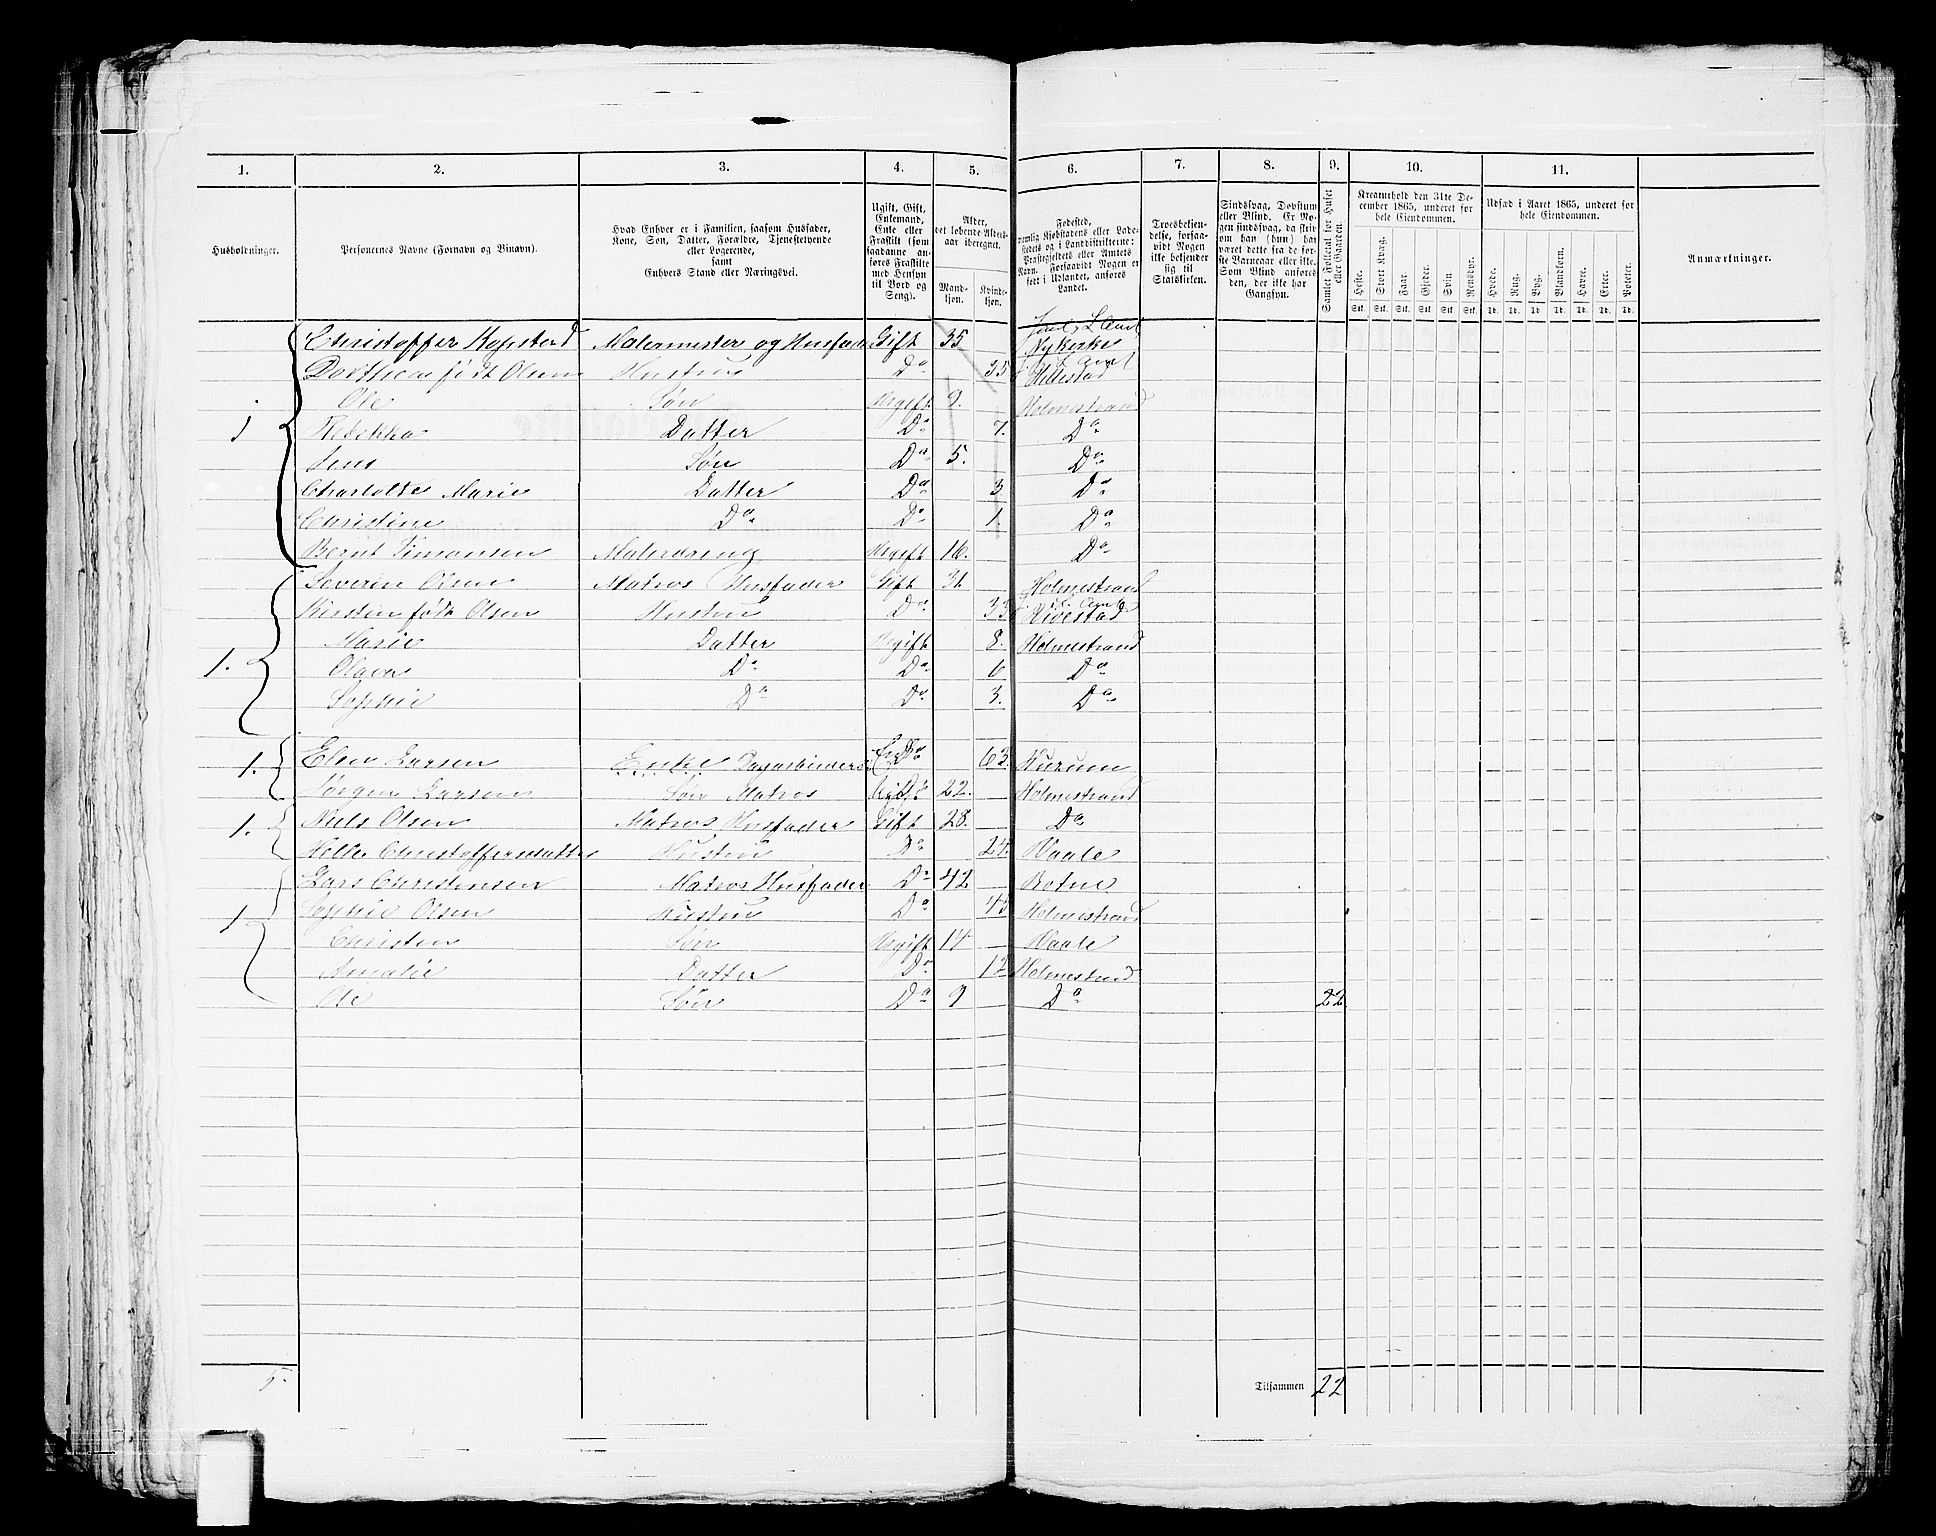 1. 2. 3. 4. 5. 6. 7. 8. 9. 10. 11.
Husholdninger.
Personernes Navne (Fornavn og Binavn).
Hvad Enhver er i Familien, saasom Husfader, Kone, Søn, Datter, Forældre, Tjenestetyende eller Logerende, samt Enhvers Stand eller Næringsvei.
Ugift, Gift, Enkemand, Enke eller Fraskilt (som saadanne anføres Fraskilte med Hensyn til Bord og Seng).
Alder, det løbende Alders-aar iberegnet.
Mandkjøn. Kvindekjøn.
Fødested, nemlig Kjøbstadens eller Ladestedets og i Landdistrikterne: Præstegjeldets eller Amtets Navn. Forsaavidt Nogen er født i Udlandet, anføres Landet.
Troesbekjendelse, forsaavidt Nogen ikke bekjender sig til Statskirken.
Sindssvag, Døvstum eller Blind. Er Nogen sindssvag, da skrives om han (hun) har været dette fra de første Barneaar eller ikke. Som Blind anføres den, der ikke har Gangsyn.
Samlet Folketal for Huset eller Gaarden.
Kreaturhold den 31te December 1865, underet for hele Eiendommen.
Heste. Stort Kvæg. Faar. Gjeder. Svin. Rensdyr.
Stk. Stk. Stk. Stk. Stk. Stk.
Udsæd i Aaret 1865, underet for hele Eiendommen.
Hvede. Rug. Byg. Blandkorn. Havre. Erter. Poteter.
Td. Td. Td. Td. Td. Td. Td.
Anmærkninger.
Christoffer Kopstad Malermester og Husfader Gift 35 Jarls L Amt Nykirke
Dorthea født Olsen Hustru Do 35 L Amt Hillestad
Ole Søn Ugift 9. Holmestrand
1 Rebekka Datter Do 7. Do
Jens Søn Do 5. Do
Charlotte Marie Datter Do 3 Do
Christine Do Do 1. Do
Bernt Simonsen Malerdreng Ugift 16. Do
Severin Olsen Matros Husfader Gift 31 Holmestrand
Kirsten født Olsen Hustru Do 33 Amt Hidestad
Marie Datter Ugift 8. Holmestrand
1. Olava Do Do 6 Do
Sophie Do Do 3. Do
1. Elen Larsen Enke 63. Hurum
Jørgen Larsen Søn Matros Ugift 22. Holmestrand
1. Niels Olsen Matros Husfader Gift 28. Do
Helle Christoffersdatter Hustru Do 24. Vaale
Lars Christensen Matros Husfader Do 42 Botne
1 Sophie Olsen Hustru Do 43 Holmestrand
Christen Søn Ugift 14 Vaale
Amalie Datter Do 12 Holmestrand
Ole Søn Do 9 Do 22.
5. Tilsammen 22